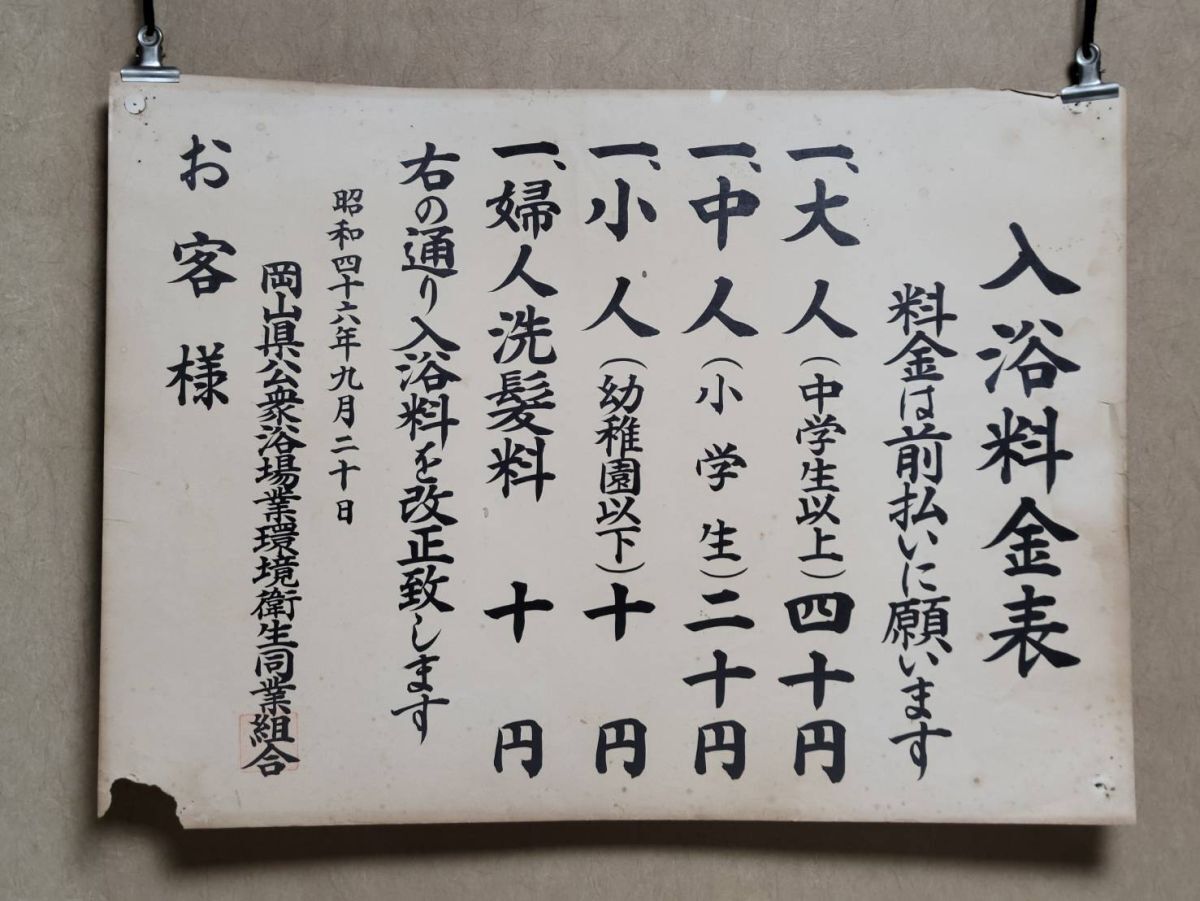 入浴料金表
料金は前払いに願います
一、大人（中学生以上）四十円
一、中人（小学生）二十円
一、小人（幼稚園以下）十円
一、婦人洗髪料 十円
右の通り入浴料を改正致します
昭和四十六年九月二十日
岡山県公衆浴場業環境衛生同業組合
お客様